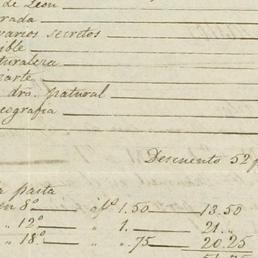 de Leon
rada
varios secretos
ible
turaleza
arte
dro. natural
eografia
Descuento 52 p
a pasta
en 8º " á fs 1.50 13.50
" 12º " " 1. 21.. "
" 18º " " " .75 20.25